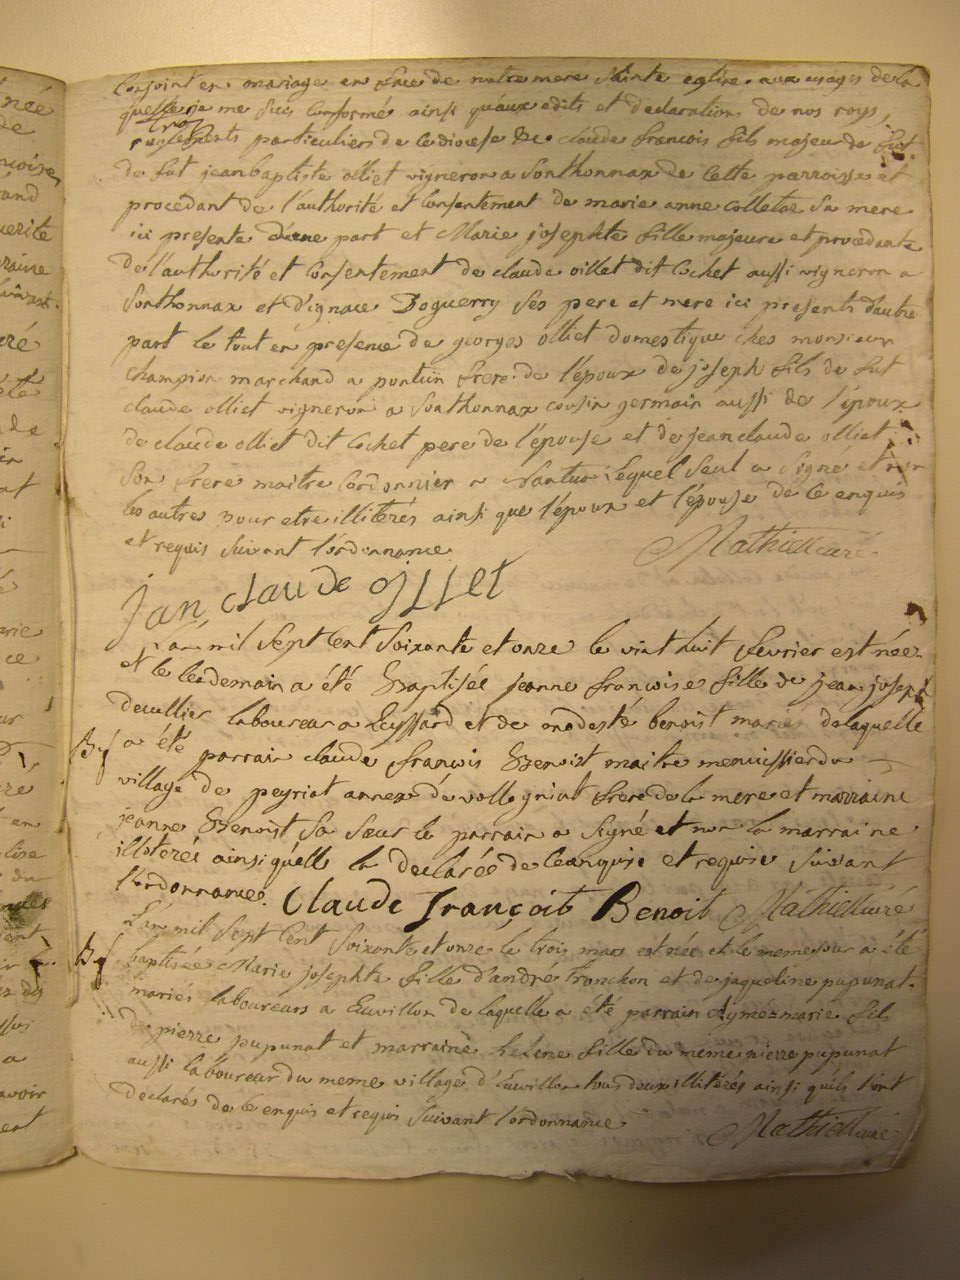 conjoint en mariage en face de nottre mere s[ain]te eglise aux usages de la
quelle je me suis conformés ainsi qu'aux edits et declarations de nos roys,
reglements particuliers de ce diocese &c. claude francois fils majeur de
de fut jean baptiste olliet vigneron a Sonthonnax de cette parroisse et
procedant de l'authorité et consentement de marie anne colletaz sa mere
ici presente d'une part et Marie josephte fille majeure et procedante
de l'authorité et consentement de claude oillet dit Cochet aussi vigneron a
Sonthonnax et d'ignace Boguerry ses pere et mere ici presents d'autre
part le tout en presence de georges olliet domestique ches monsieur
champion marchand a frere de l'époux de joseph fils de fut
claude olliet vigneron a Sonthonnax cousin germain aussi de l'époux
de claude olliet dit Cochet pere de l'épouse et de jean claude olliet
son frere maitre cordonnier a Nantua lequel seul a signé et non
les autres pour etre illitérés ainsi que l'époux et l'épouse de ce enquis
et requis suivant l'ordonnance Mathieu curé
jan claude ojllet
L'an mil sept cent soixante et onze le vint huit fevrier est née
et le lendemain a été Baptisée jeanne françoise fille de jean joseph
decullier laboureur a Leyssard et de modeste benoist mariés de laquelle
a été parrain claude francois Benoist maitre menuissier du
village de peyriat annexe de vollogniat frere de la mere et marraine
jeanne Benoist sa sœur le parrain a signé et non la marraine
illitérée ainsi qu'elle la declarée de ce enquise et requise suivant
l'ordonnance. Claude François Benoit Mathieu curé
Bf
L'an mil sept cent soixante et onze le trois mars est née et le meme jour a été
baptisée Marie josephte fille d'andre tronchon et de jaqueline pupunat
mariés laboureurs a Euvillon de laquelle a été parrain Aymé marie fils
de pierre pupunat et marraine helene fille du meme pierre pupunat
aussi laboureur du meme village d'Euvillon tous deux illitérés ainsi qu'ils l'ont
declarés de ce enquis et requis suivant l'ordonnance
Mathieu curé
Bf